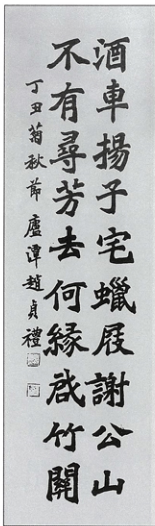 酒車揚子宅蠟屐謝公山
不有尋芳去何緣啟竹關
丁丑菊秋節廬潭趙貞禮